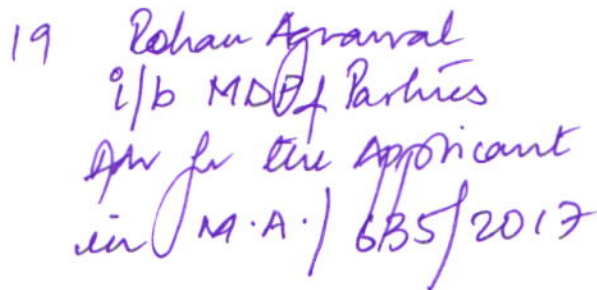 19 Rohan Agrawal
i/b MDP & Partners
Adv for the Applicant
in M.A./635/2017